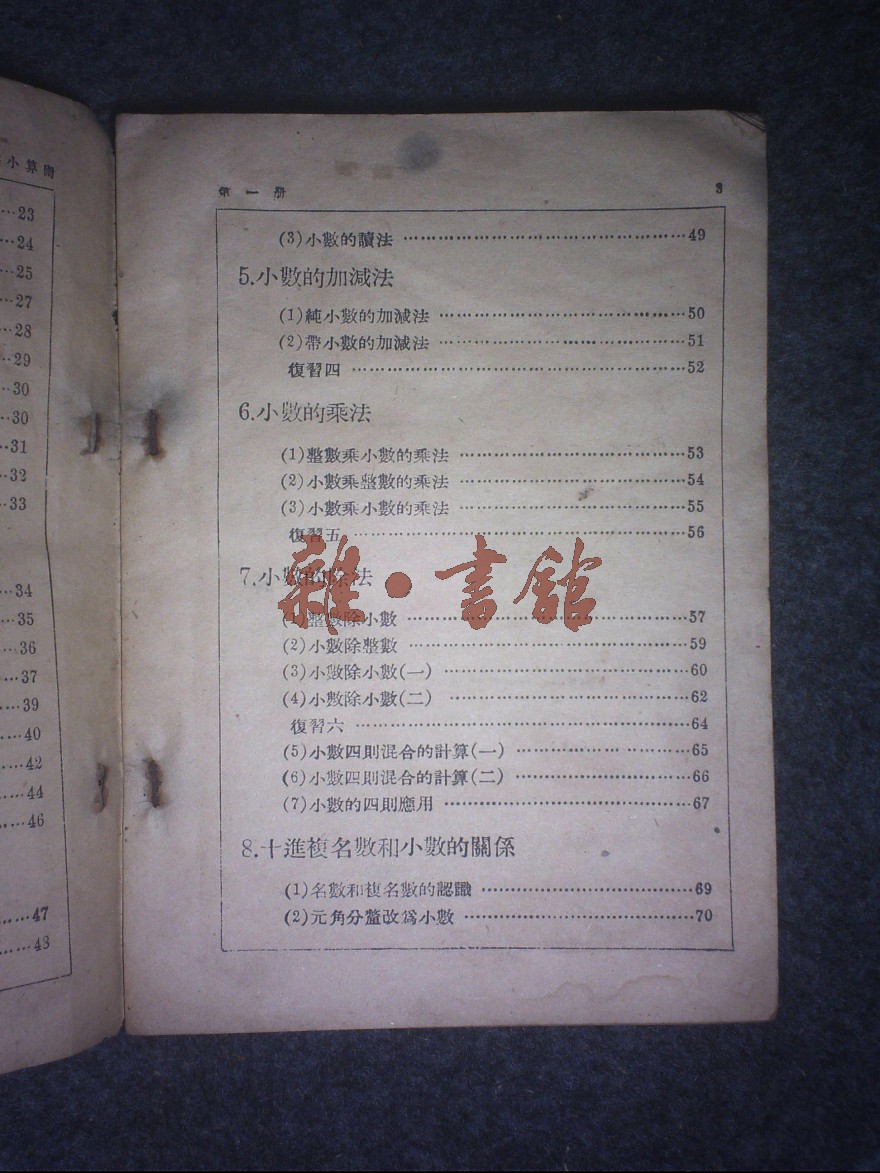 小算術
…23
…24
…25
…27
…28
…29
…30
…30
…31
…32
…33
…34
…35
…36
…37
…39
…40
…42
…44
…46
…47
…43
第一册 3
(3)小數的讀法 …49
5.小數的加減法
(1)純小數的加減法 …50
(2)帶小數的加減法 …51
復習四 …52
6.小數的乘法
(1)整數乘小數的乘法 …53
(2)小數乘整數的乘法 …54
(3)小數乘小數的乘法 …55
復習五 …56
7.小數的除法
(1)整數除小數 …57
(2)小數除整數 …59
(3)小數除小數(一) …60
(4)小數除小數(二) …62
復習六 …64
(5)小數四則混合的計算(一) …65
(6)小數四則混合的計算(二) …66
(7)小數的四則應用 …67
8.十進複名數和小數的關係
(1)名數和複名數的認識 …69
(2)元角分釐改爲小數 …70
雜·書館